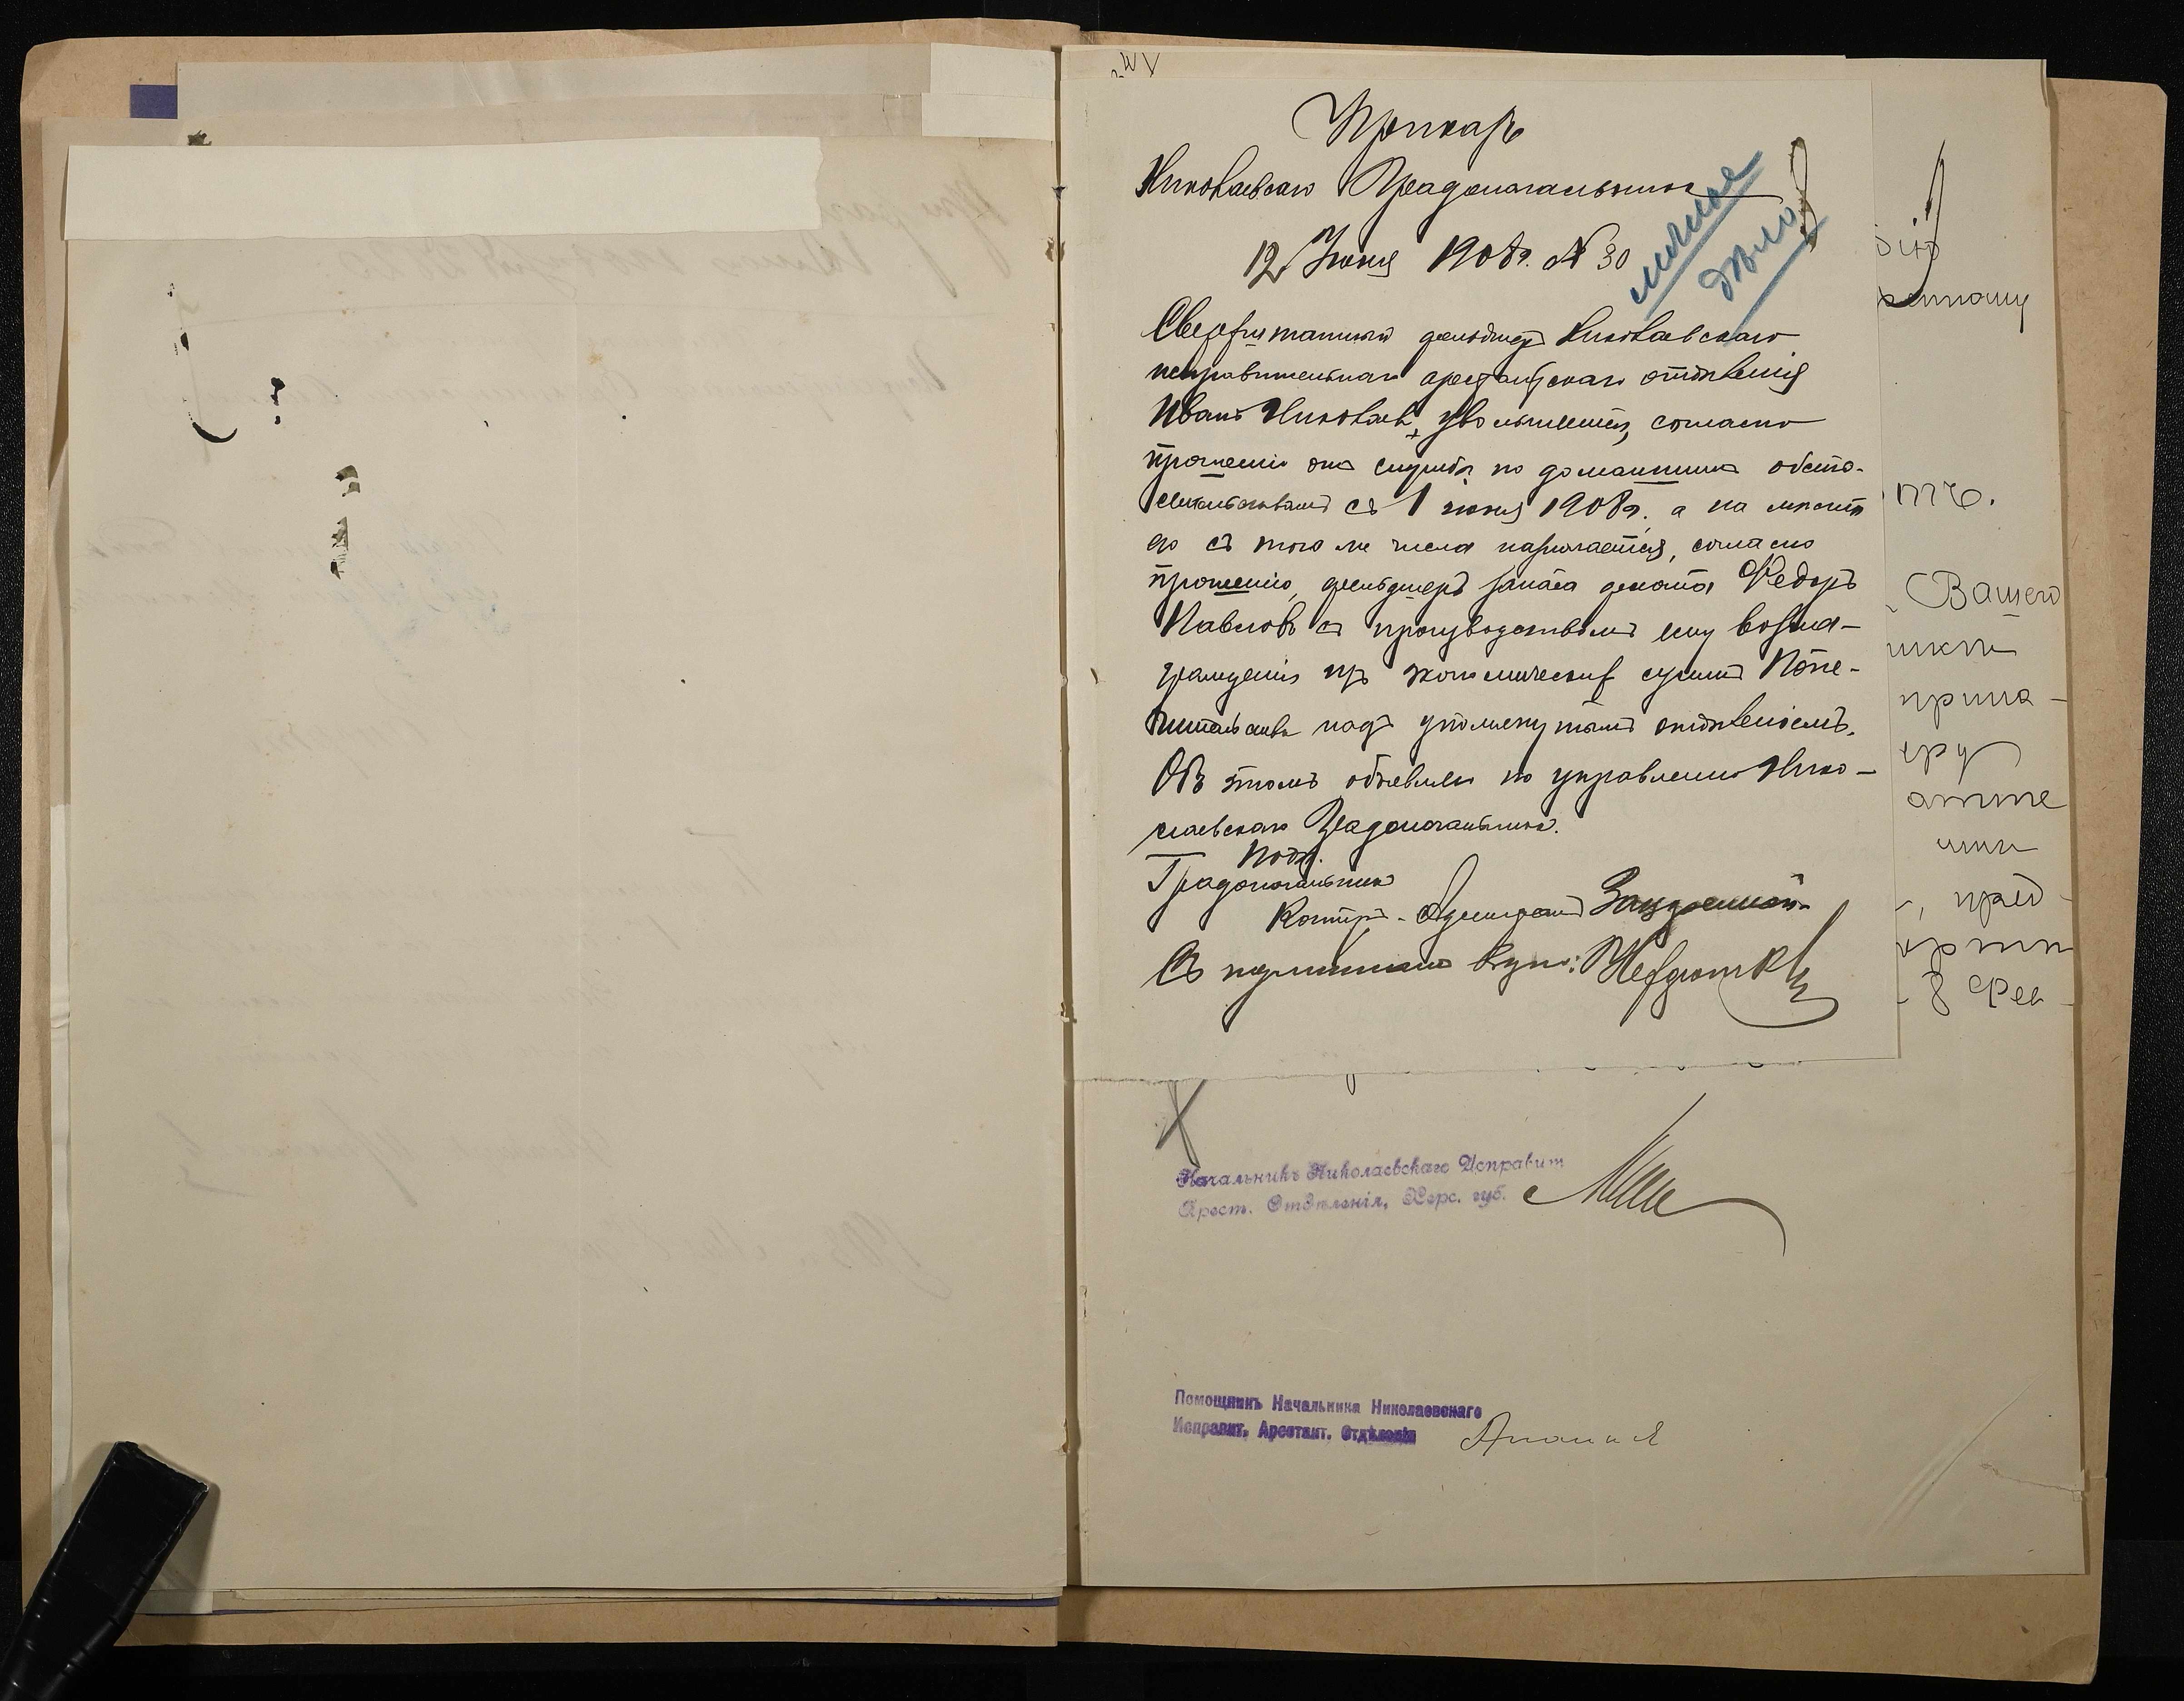 Приказъ
Николаевскаго Градоначальника
12 Іюня 1908 г. № 30
личное
дѣло
Сверхштатный фельдшеръ Николаевскаго
исправительнаго арестантскаго отдѣленія
Иванъ Николаев, увольняется, согласно
прошенію отъ службы по домашнимъ обсто-
ятельствамъ съ 1 іюня 1908 г., а на мѣсто
его съ того же числа назначается, согласно
прошенію, фельдшеръ запаса флота Федоръ
Павловъ съ производствомъ ему возна-
гражденія изъ экономическихъ суммъ Попе-
чительства надъ упомянутымъ отдѣленіемъ.
Объ этомъ объявляю по управленію Нико-
лаевскаго Градоначальника.
Подп.
Градоначальникъ
Контръ-Адмиралъ
Съ подлиннымъ вѣрно:
Вашего
Начальникъ Николаевскаго Исправит
Арест. Отдѣленія, Херс. губ.
Помощникъ Начальника Николаевскаго
Исправит. Арестант. Отдѣленія